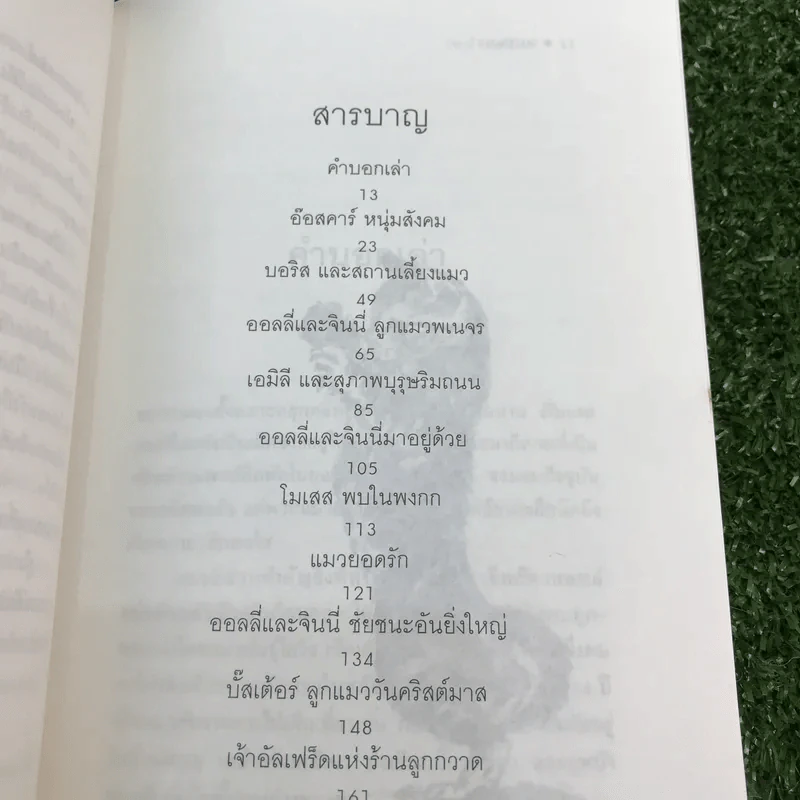 สารบาญ
คำบอกเล่า
13
อ๊อสคาร์ หนุ่มสังคม
23
บอริส และสถานเลี้ยงแมว
49
ออลลี่และจินนี่ ลูกแมวพเนจร
65
เอมิลี และสุภาพบุรุษริมถนน
85
ออลลี่และจินนี่มาอยู่ด้วย
105
โมเสส พบในพงกก
113
แมวยอดรัก
121
ออลลี่และจินนี่ ชัยชนะอันยิ่งใหญ่
134
บั๊สเต้อร์ ลูกแมววันคริสต์มาส
148
เจ้าอัลเฟร็ดแห่งร้านลูกกวาด
161